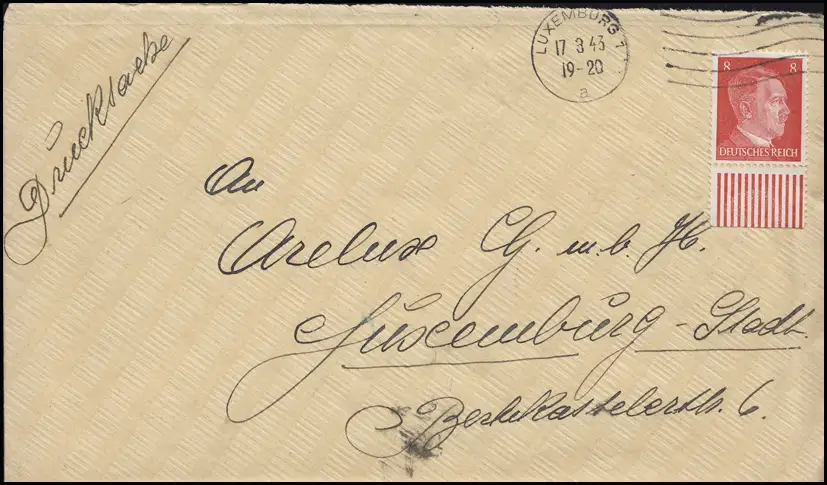 Drucksache
LUXEMBURG 1
17 3 43
19-20
a
8 8
DEUTSCHES REICH
An
Arelux G.m.b.H.
Luxemburg-Stadt.
6.